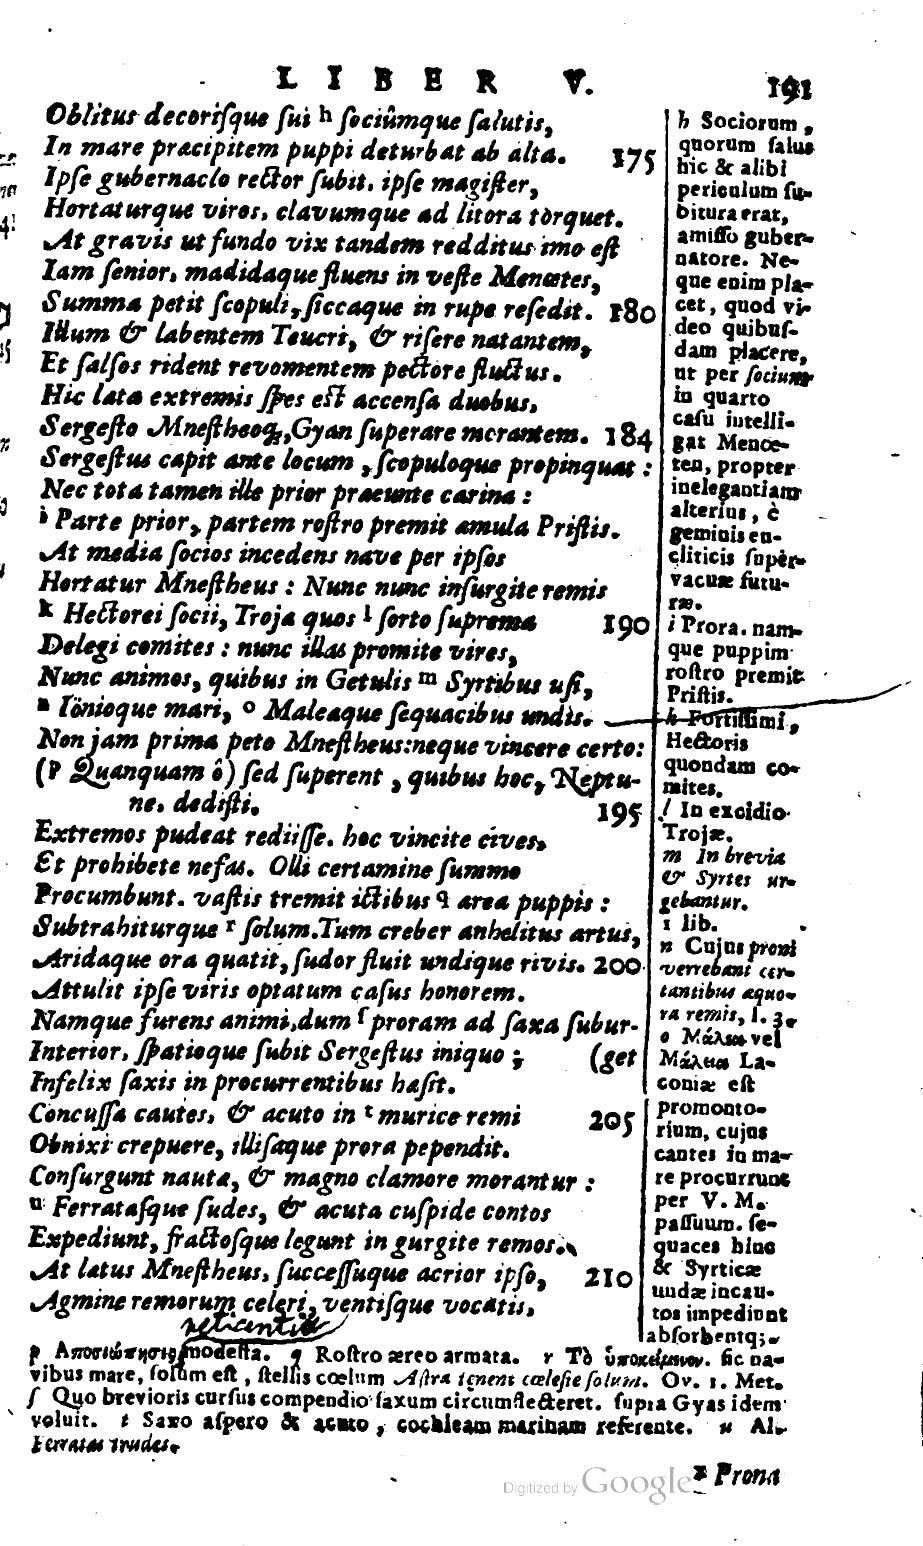 LIBER V. 191
Oblitus decorisque sui h sociûmque salutis,
In mare præcipitem puppi deturbat ab alta. 175
Ipse gubernaclo rector subit, ipse magister,
Hortaturque viros, clavumque ad litora tòrquet.
At gravis ut fundo vix tandem redditus imo est
Iam senior, madidaque fluens in veste Menœtes,
Summa petit scopuli, siccaque in rupe resedit. 180
Illum & labentem Teucri, & risere natantem,
Et salsos rident revomentem pectore fluctus.
Hic læta extremis spes est accensa duobus,
Sergesto Mnestheoq;, Gyan superare morantem. 184
Sergestus capit ante locum, scopuloque propinquat:
Nec tota tamen ille prior præeunte carina:
i Parte prior, partem rostro premit æmula Pristis.
At media socios incedens nave per ipsos
Hortatur Mnestheus: Nunc nunc insurgite remis
k Hectorei socii, Trojæ quos l sorto suprema 190
Delegi comites: nunc illas promite vires,
Nunc animos, quibus in Getulis m Syrtibus usi,
n Iönioque mari, o Maleæque sequacibus undis.
Non jam prima peto Mnestheus: neque vincere certo:
(p Quanquam ô) sed superent, quibus hoc, Neptu-
ne, dedisti. 195
Extremos pudeat rediisse. hoc vincite cives,
Et prohibete nefas. Olli certamine summo
Procumbunt. vastis tremit ictibus q ærea puppis:
Subtrahiturque r solum. Tum creber anhelitus artus,
Aridaque ora quatit, sudor fluit undique rivis. 200
Attulit ipse viris optatum casus honorem.
Namque furens animi, dum s proram ad saxa subur-
Interior, spatioque subit Sergestus iniquo; (get
Infelix saxis in procurrentibus hæsit.
Concussæ cautes, & acuto in t murice remi 205
Obnixi crepuere, illisaque prora pependit.
Consurgunt nautæ, & magno clamore morantur:
u Ferratasque sudes, & acuta cuspide contos
Expediunt, fractosque legunt in gurgite remos.
At lætus Mnestheus, successuque acrior ipso, 210
Agmine remorum celeri, ventisque vocatis,
h Sociorum,
quorum salus
hic & alibi
periculum su-
bitura erat,
amisso guber-
natore. Ne-
que enim pla-
cet, quod vi-
deo quibus-
dam placere,
ut per socium
in quarto
casu intelli-
gat Menœ-
ten, propter
inelegantiam
alterius, è
geminis en-
cliticis super-
vacuæ futu-
ræ.
i Prora. nam-
que puppim
rostro premit
Pristis.
k Fortissimi,
Hectoris
quondam co-
mites.
l In excidio
Trojæ.
m In brevia
& Syrtes ur-
gebantur.
1 lib.
n Cujus proni
verrebant cer-
tantibus æquo-
ra remis, l. 3.
o Μάλεια vel
Μάλεια La-
coniæ est
promonto-
rium, cujus
cantes in ma-
re procurrunt
per V. M.
passuum. se-
quaces hinc
& Syrticæ
undæ incau-
tos impediunt
absorbentq;.
reticentia
p Αποσιώπησις modesta. q Rostro æreo armata. r Τὸ ὑποκείμενον. sic na-
vibus mare, solum est, stellis cœlum Astra tenent cœleste solum. Ov. 1. Met.
s Quo brevioris cursus compendio saxum circumflecteret. supra Gyas idem
voluit. t Saxo aspero & acuto, cochleam marinam referente. u Al.
Ferratas trudes.
x Prona
Digitized by Google